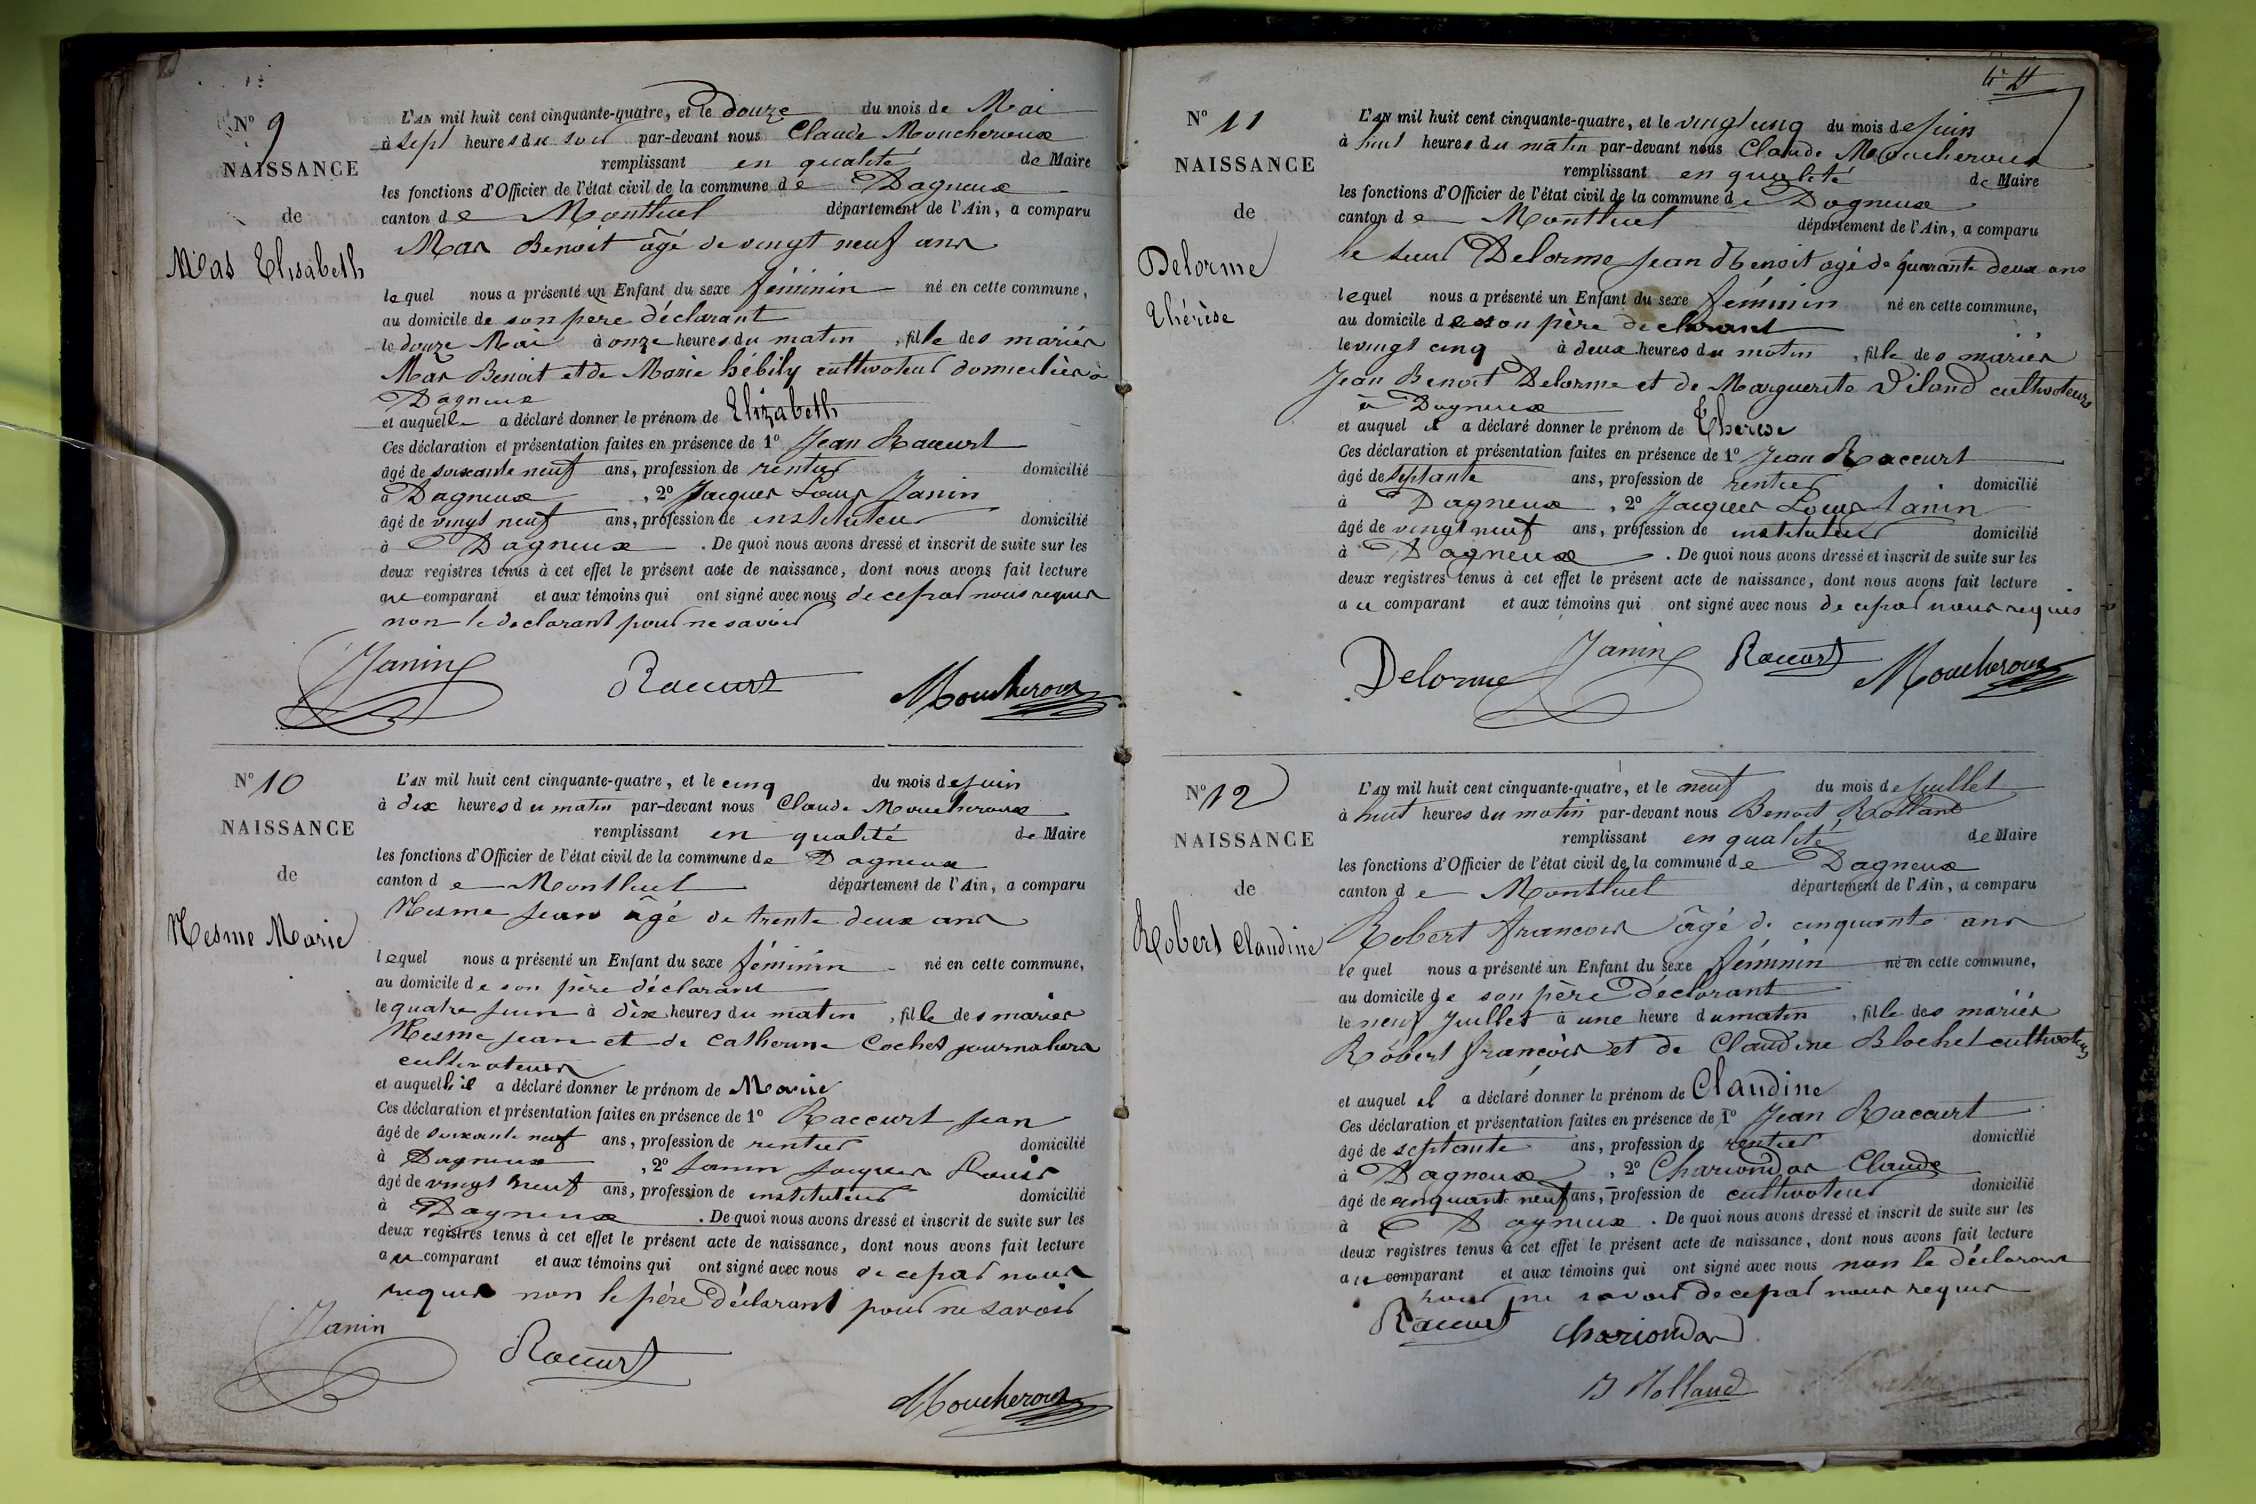 Nº 9
NAISSANCE
de
Mas Elisabeth
L'AN mil huit cent cinquante-quatre, et le douze du mois de Mai
à sept heures du soir par-devant nous Claude Moucheroux
remplissant en qualité de Maire
les fonctions d'Officier de l'état civil de la commune de Dagneux
canton de Montluel département de l'Ain, a comparu
Mas Benoit âgé de vingt neuf ans
lequel nous a présenté un Enfant du sexe féminin né en cette commune,
au domicile de son pere déclarant
le douze Mai à onze heures du matin, fille des mariés
Mas Benoit et de Marie hébily cultivateur domiciliés à
Dagneux
et auquelle a déclaré donner le prénom de Elizabeth
Ces déclaration et présentation faites en présence de 1º Jean Raccurt
âgé de soixante neuf ans, profession de rentier domicilié
à Dagneux, 2º Jacques Louis Janin
âgé de vingt neuf ans, profession de instituteur domicilié
à Dagneux. De quoi nous avons dressé et inscrit de suite sur les
deux registres tenus à cet effet le présent acte de naissance, dont nous avons fait lecture
au comparant et aux témoins qui ont signé avec nous de ce par nous requis
non le déclarant pour ne savoir
Janin Raccurt Moucheroux
Nº 10
NAISSANCE
de
Mesme Marie
L'AN mil huit cent cinquante-quatre, et le cinq du mois de juin
à dix heures du matin par-devant nous Claude Moucheroux
remplissant en qualité de Maire
les fonctions d'Officier de l'état civil de la commune de Dagneux
canton de Montluel département de l'Ain, a comparu
Mesme Jean âgé de trente deux ans
lequel nous a présenté un Enfant du sexe féminin né en cette commune,
au domicile de son père déclarant
le quatre juin à dix heures du matin, fille des mariés
Mesme Jean et de Catherine Cochet journaliers
cultivateurs
et auquel il a déclaré donner le prénom de Marie
Ces déclaration et présentation faites en présence de 1º Raccurt Jean
âgé de soixante neuf ans, profession de rentier domicilié
à Dagneux, 2º Janin Jacques Louis
âgé de vingt neuf ans, profession de instituteur domicilié
à Dagneux. De quoi nous avons dressé et inscrit de suite sur les
deux registres tenus à cet effet le présent acte de naissance, dont nous avons fait lecture
au comparant et aux témoins qui ont signé avec nous de ce par nous
requis non le père déclarant pour ne savoir
Janin Raccurt Moucheroux
Nº 11
NAISSANCE
de
Delorme
Thérèse
L'AN mil huit cent cinquante-quatre, et le vingt cinq du mois de Juin
à huit heures du matin par-devant nous Claude Moucheroux
remplissant en qualité de Maire
les fonctions d'Officier de l'état civil de la commune de Dagneux
canton de Montluel département de l'Ain, a comparu
le sieur Delorme Jean Benoit agé de quarante deux ans
lequel nous a présenté un Enfant du sexe féminin né en cette commune,
au domicile de son père déclarant
le vingt cinq à deux heures du matin, fille des mariés
Jean Benoit Delorme et de Marguerite Viland cultivateurs
à Dagneux
et auquel il a déclaré donner le prénom de Therese
Ces déclaration et présentation faites en présence de 1º Jean Raccurt
âgé de septante ans, profession de rentier domicilié
à Dagneux, 2º Jacques Louis Janin
âgé de vingt neuf ans, profession de instituteur domicilié
à Dagneux. De quoi nous avons dressé et inscrit de suite sur les
deux registres tenus à cet effet le présent acte de naissance, dont nous avons fait lecture
au comparant et aux témoins qui ont signé avec nous de ce par nous requis
Delorme Janin Raccurt Moucheroux
Nº 12
NAISSANCE
de
Robert Claudine
L'AN mil huit cent cinquante-quatre, et le neuf du mois de Juillet
à huit heures du matin par-devant nous Benoit Rolland
remplissant en qualité de Maire
les fonctions d'Officier de l'état civil de la commune de Dagneux
canton de Montluel département de l'Ain, a comparu
Robert francois âgé de cinquante ans
lequel nous a présenté un Enfant du sexe féminin né en cette commune,
au domicile de son père déclarant
le neuf Juillet à une heure du matin, fille des mariés
Robert françois et de Claudine Blochet cultivateurs
et auquel il a déclaré donner le prénom de Claudine
Ces déclaration et présentation faites en présence de 1º Jean Raccurt
âgé de septante ans, profession de rentier domicilié
à Dagneux, 2º Chariondas Claude
âgé de cinquante neuf ans, profession de cultivateur domicilié
à Dagneux. De quoi nous avons dressé et inscrit de suite sur les
deux registres tenus à cet effet le présent acte de naissance, dont nous avons fait lecture
au comparant et aux témoins qui ont signé avec nous non le déclarant
pour ne savoir de ce par nous requis
Raccurt Chariondas
B Rolland